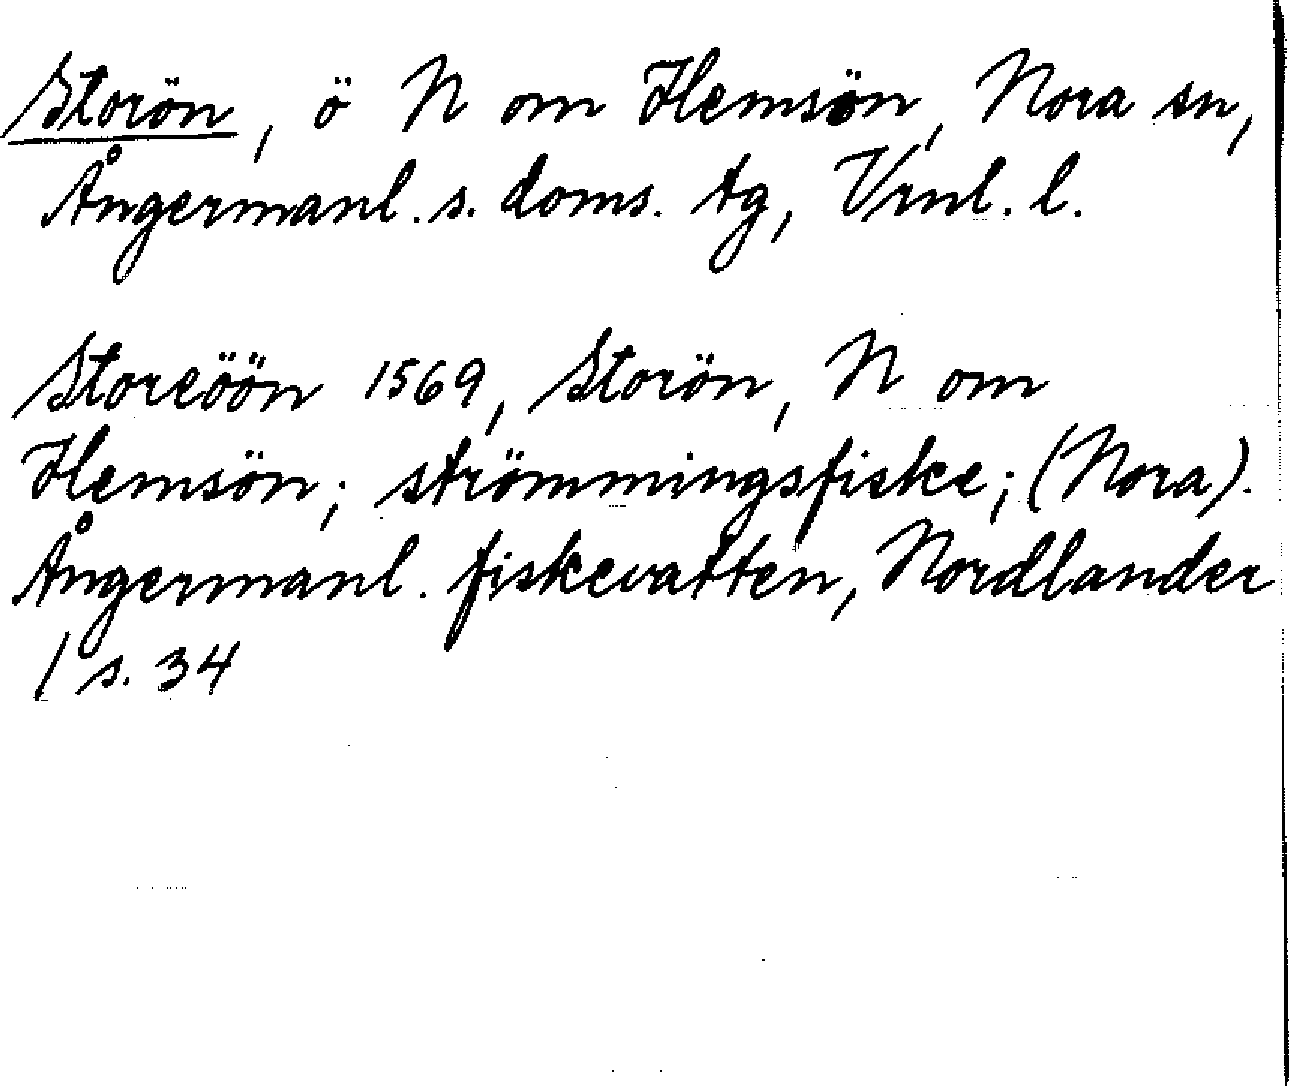 Storön, ö N om Hemsön, Nora sn,
Ångermanl. s. doms. tg, Vrnl. l.
Storeöön 1569, Storön, N om
Hemsön; strömmingsfiske; (Nora).
Ångermanl. fiskevatten, Nordlander
1 s. 34